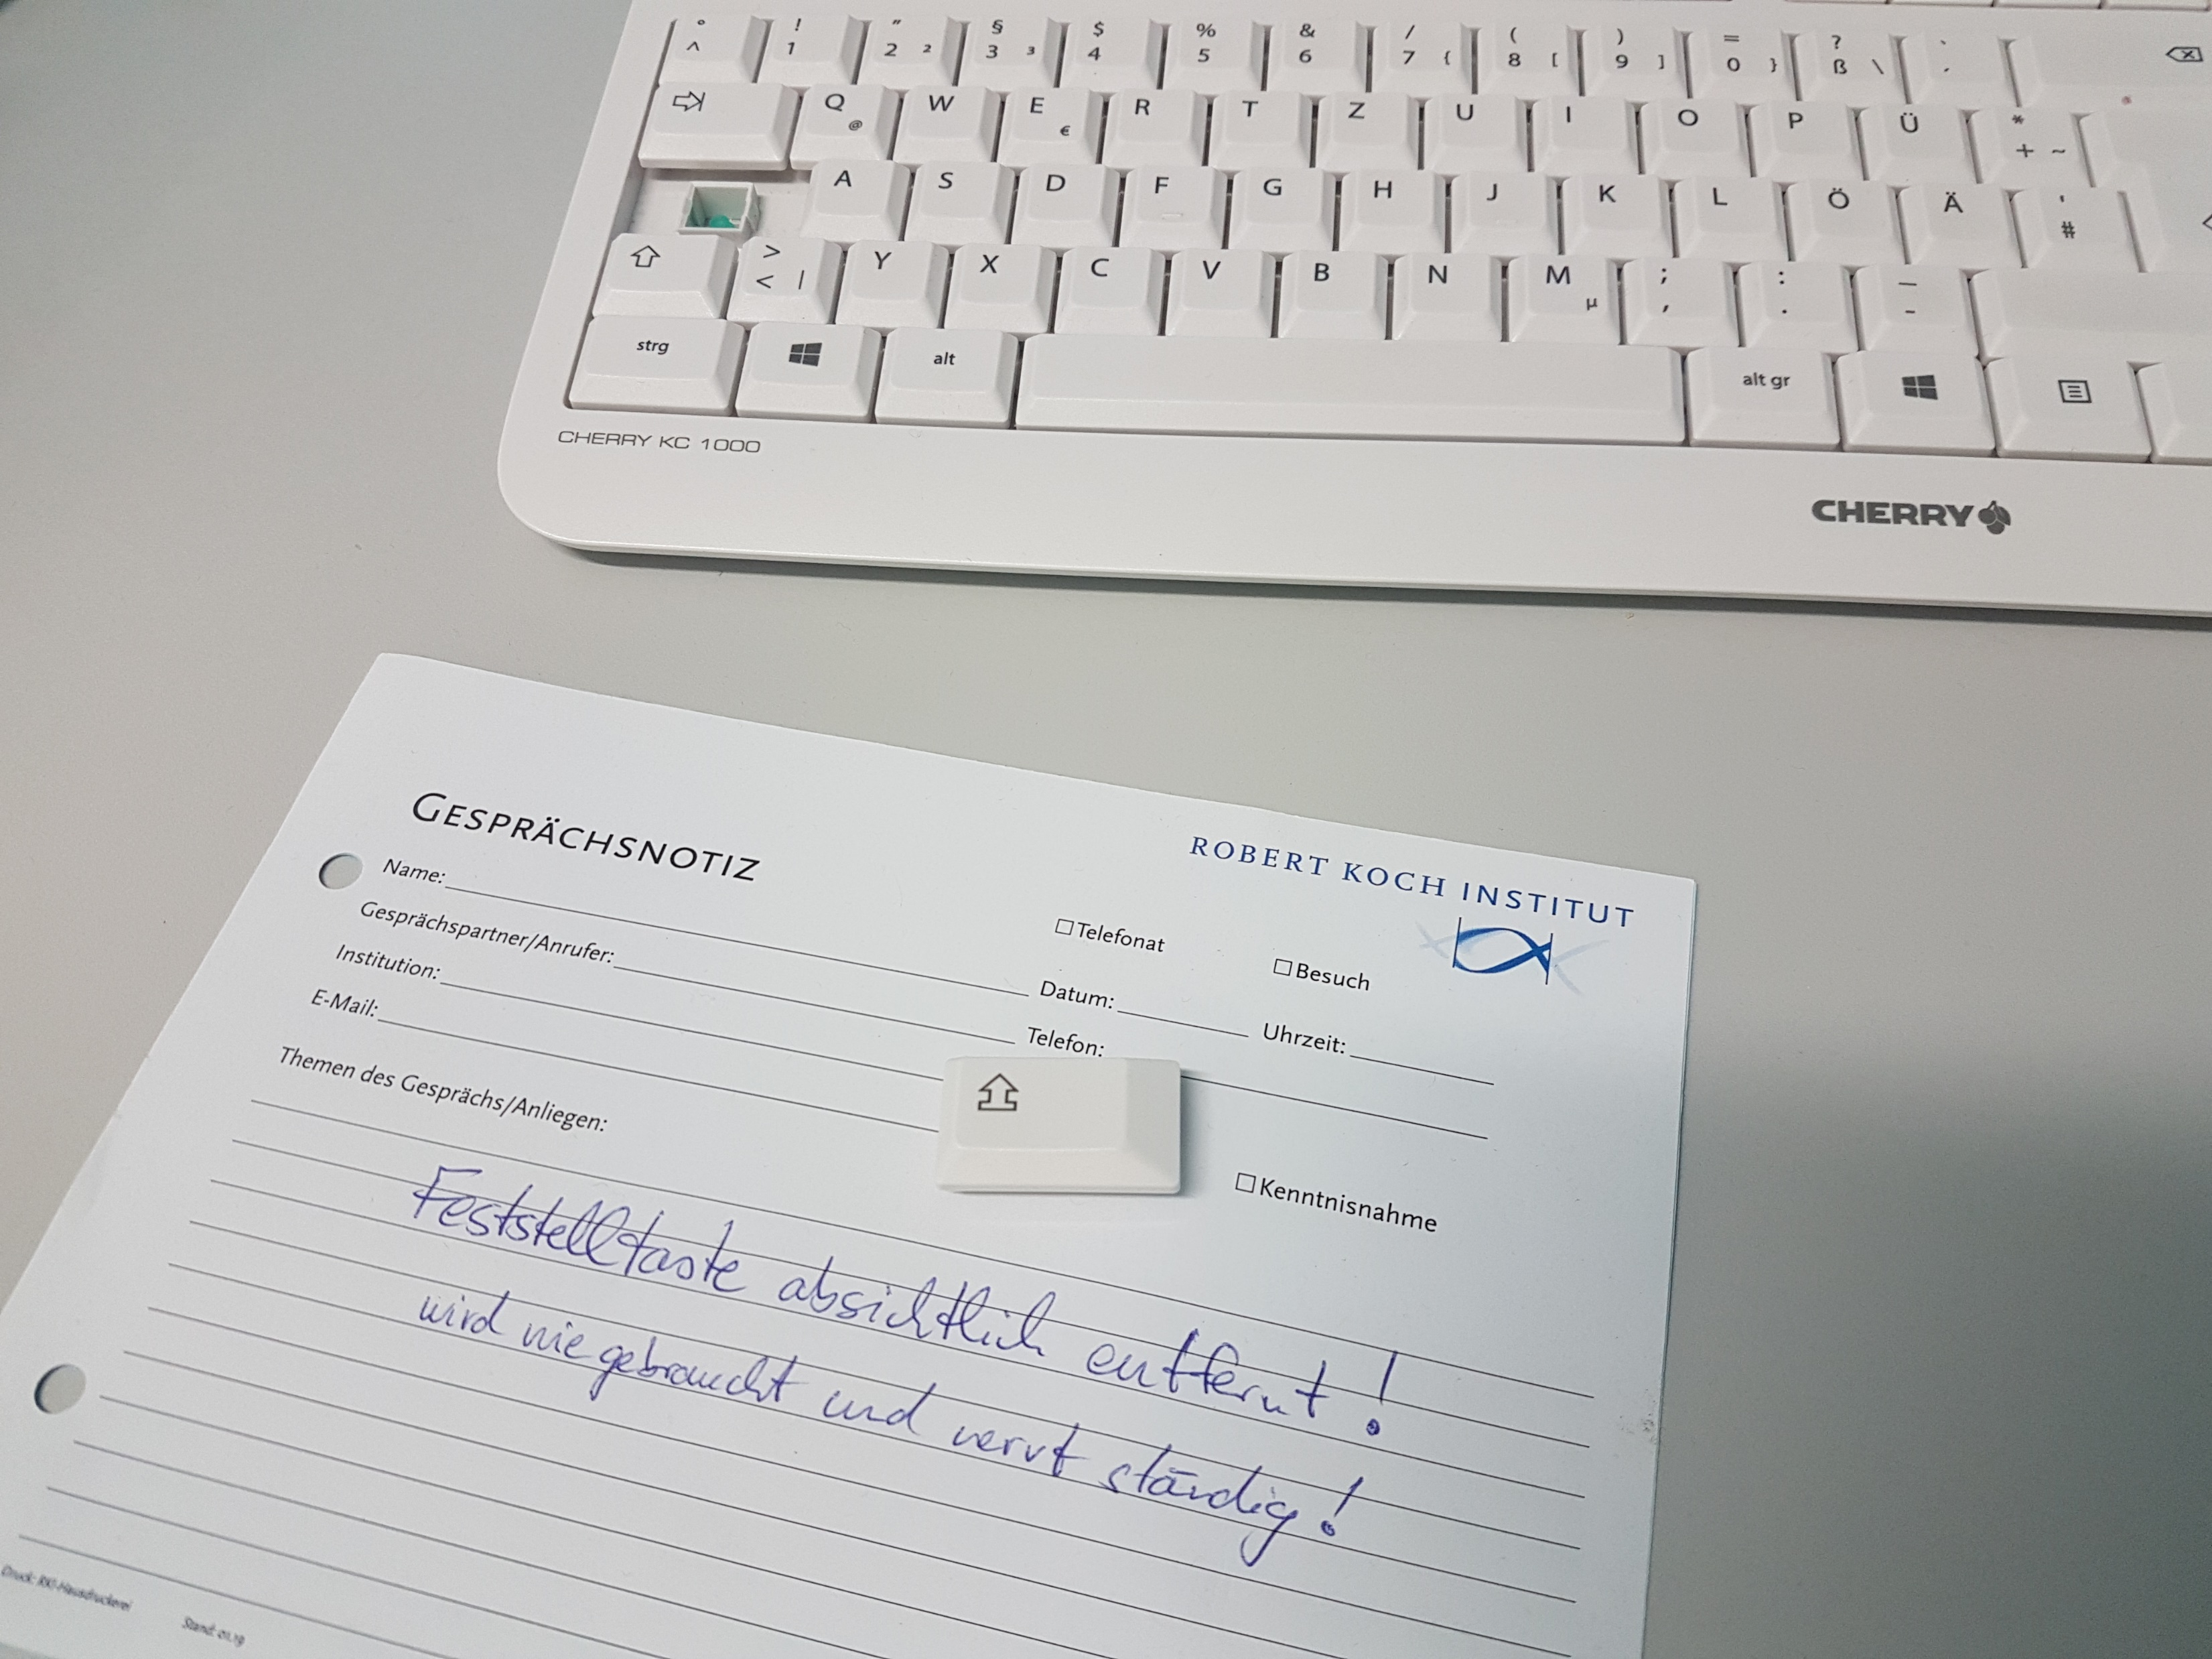 ° ! " § $ % & / ( ) = ? `
^ 1 2 ² 3 ³ 4 5 6 7 { 8 [ 9 ] 0 } ß \ ´
Q @ W E € R T Z U I O P Ü * + ~
A S D F G H J K L Ö Ä ' #
> < | Y X C V B N M µ ; , : . _ -
strg alt alt gr
CHERRY KC 1000
CHERRY
GESPRÄCHSNOTIZ
ROBERT KOCH INSTITUT
Name:
Telefonat
Besuch
Gesprächspartner/Anrufer:
Datum:
Uhrzeit:
Institution:
Telefon:
E-Mail:
Themen des Gesprächs/Anliegen:
Kenntnisnahme
Feststelltaste absichtlich entfernt!
wird nie gebraucht und nervt ständig!
Druck: RKI-Hausdruckerei
Stand: 01.19